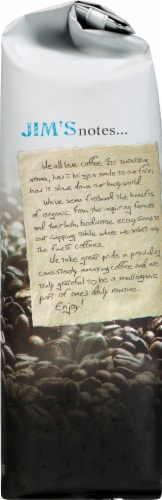 JIM'S notes...
We all love coffee. Its satisfying
aroma, how it brings a smile to our face,
how it slows down our busy world.
We've seen firsthand the benefits
of organic from the inspiring farmers
and their lush, biodiverse ecosystems to
our cupping table where we select only
the finest coffees.
We take great pride in providing
consistently amazing coffee and are
truly grateful to be a small organic
part of one's daily routine.
Enjoy!